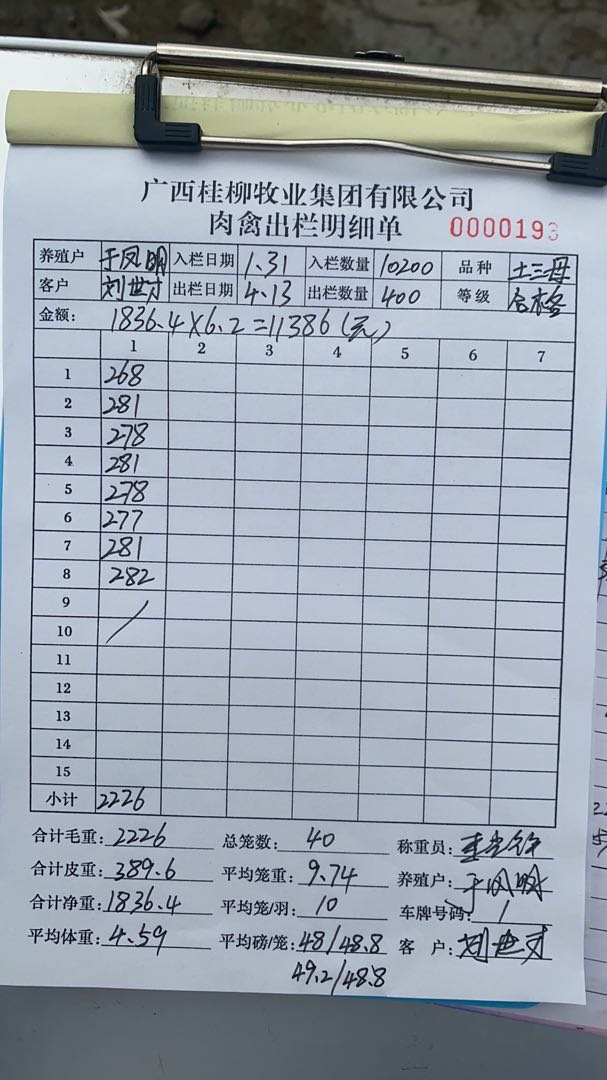 广西桂柳牧业集团有限公司
肉禽出栏明细单 0000193
养殖户 于凤明 入栏日期 1.31 入栏数量 10200 品种 土三母
客户 刘世才 出栏日期 4.13 出栏数量 400 等级 合格
金额: 1836.4×6.2=11386(元)
1 2 3 4 5 6 7
1 268
2 281
3 278
4 281
5 278
6 277
7 281
8 282
9
10
11
12
13
14
15
小计 2226
合计毛重: 2226 总笼数: 40 称重员:
合计皮重: 389.6 平均笼重: 9.74 养殖户: 于凤明
合计净重: 1836.4 平均笼/羽: 10 车牌号码: 1
平均体重: 4.59 平均磅/笼: 48/48.8 客 户: 刘世才
49.2/48.8